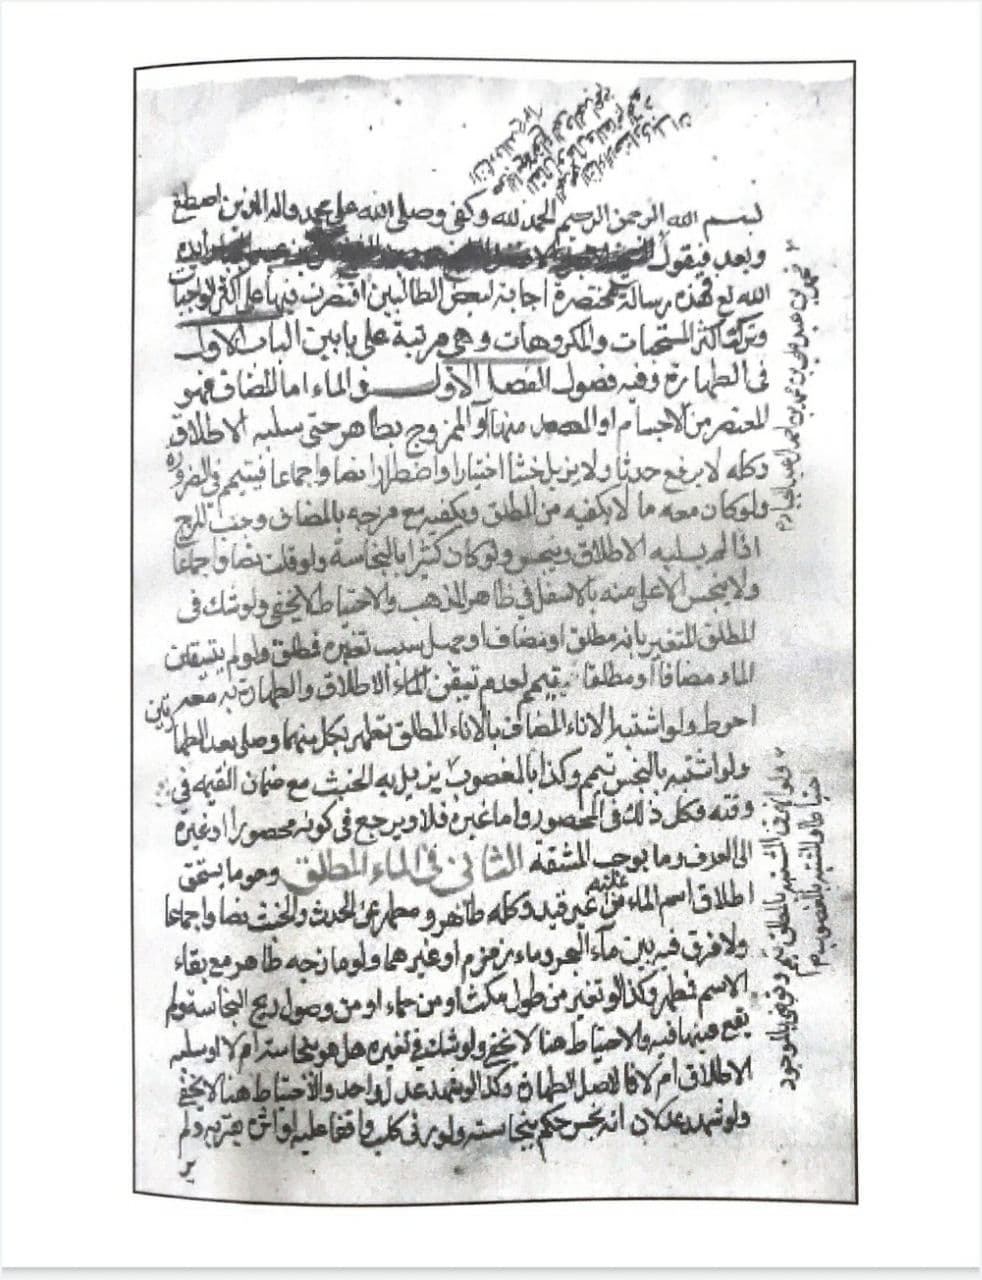 بسم الله الرحمن الرحيم الحمد لله وكفى وصلى الله على محمد واله الذين اصطفى
وبعد فيقول
الله تع فهذه رسالة مختصرة اجابة لبعض الطالبين اقتصرت فيها على اكثر الواجبات
وتركت اكثر المستحبات والمكروهات وهي مرتبة على بابين الباب الاول
في الطهارة وفيه فصول الفصل الاول في الماء اما المضاف فهو
المعتصر من الاجسام او المصعد منها او الممزوج بطاهر حتى سلبه الاطلاق
وكله لا يرفع حدثا ولا يزيل خبثا اختيارا واضطرارا نصا واجماعا فيتيمم في الضرورة
ولو كان معه ما لا يكفيه من المطلق ويكفيه مع مزجه بالمضاف وجب المزج
اذا لم يسلبه الاطلاق وينجس ولو كان كثيرا بالنجاسة ولو قلت نصا واجماعا
ولا ينجس الاعلى منه بالاسفل في ظاهر المذهب والاحتياط لا يخفى ولو شك في
المطلق المتغير بانه مطلق او مضاف او جهل سبب تغيره فمطلق ولو لم يتيقن
الماء مضافا او مطلقا يتيمم لعدم تيقن الماء الاطلاق والطهارة به مرتين
احوط ولو اشتبه الاناء المضاف بالاناء المطلق تطهر بكل منهما وصلى بعد الطها
ولو اشتبه بالنجس تيمم وكذا بالمغصوب يزيل به الخبث مع ضمان القيمه في
وقته وكل ذلك في المحصور واما غيره فلا ويرجع في كونه محصورا او غيره
الى العرف وما يوجب المشقة الثاني في الماء المطلق وهو ما يستحق
اطلاق اسم الماء عليه من غير قيد وكله طاهر ومطهر عن الحدث والخبث نصا واجماعا
ولا فرق فيه بين ماء البحر وماء زمزم او غيرهما ولو مازجه طاهر مع بقاء
الاسم فطهر وكذا لو تغير من طول مكث او من حماء او من وصول ريح النجاسة ولم
يقع عينها فيه والاحتياط هنا لا يخفى ولو شك في تغيره هل هو بنجاسة ام لا او سلبه
الاطلاق ام لا فالاصل الطهارة وكذا لو شهد عدل واحد والاحتياط هنا لا يخفى
ولو شهد عدلان انه نجس حكم بنجاسته ولو رئى كلب واقفا عليه او اثره بقربه ولم
ير
محمد بن عبد علي بن محمد بن احمد
ولو اشتبه بالمطلق تيمم وتوضى بالموجود
احتياطا والمشتبه بالمغصوب